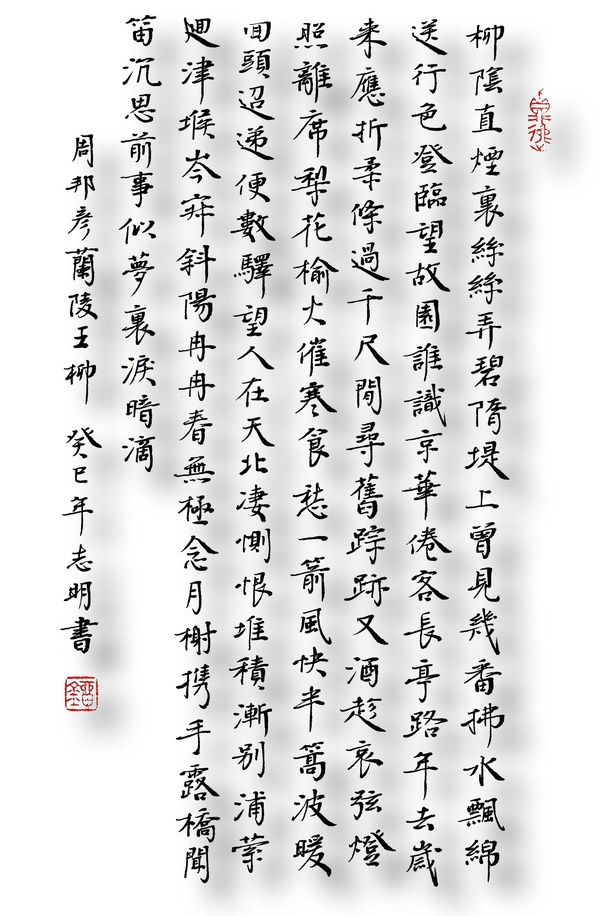 柳陰直煙裏絲絲弄碧隋堤上曾見幾番拂水飄綿
送行色登臨望故園誰識京華倦客長亭路年去歲
來應折柔條過千尺閒尋舊踪跡又酒趁哀弦燈
照離席梨花榆火催寒食愁一箭風快半篙波暖
囬頭迢递便數驛望人在天北凄惻恨堆積漸别浦萦
迴津堠岑寂斜陽冉冉春無極念月榭携手露橋聞
笛沉思前事似夢裏淚暗滴
周邦彦蘭陵王柳 癸巳年志明書